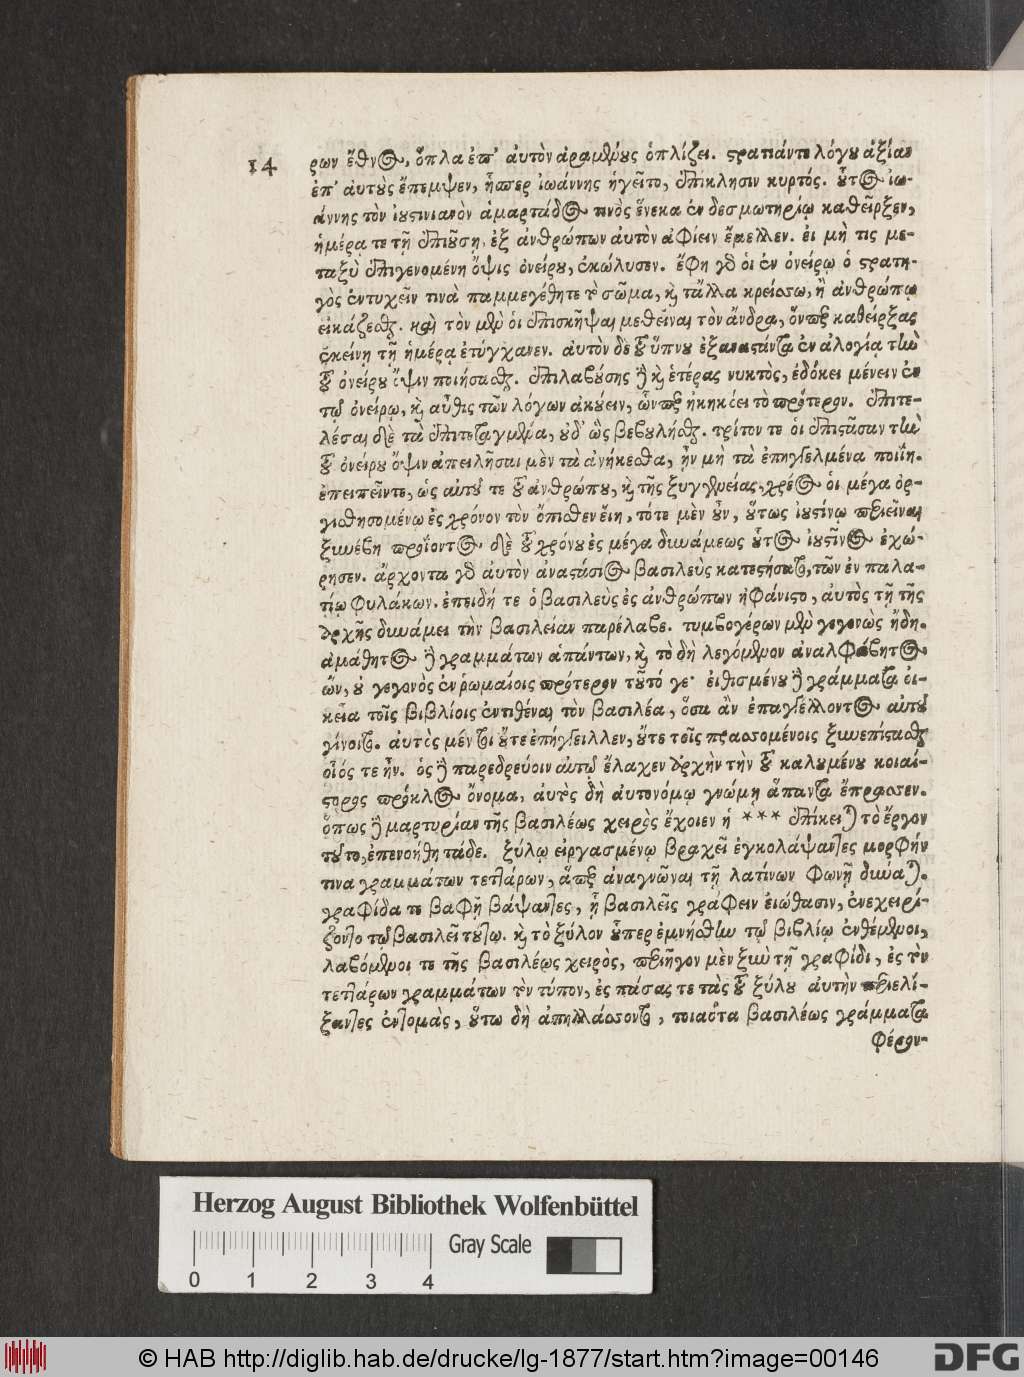 14 ρων ἔθνος, ὅπλα ἐπ' αὐτὸν ἀραμένους ὁπλίζει. στρατιάν τε λόγου ἀξίαν
ἐπ' αὐτοὺς ἔπεμψεν, ἧσπερ ἰωάννης ἡγεῖτο, ἐπίκλησιν κυρτός. οὗτος ἰω-
άννης τὸν ἰουστινιανὸν ἁμαρτάδος τινὸς ἕνεκα ἐν δεσμωτηρίῳ καθεῖρξεν,
ἡμέρᾳ τε τῇ ἐπιούσῃ, ἐξ ἀνθρώπων αὐτὸν ἀφίειν ἔμελλεν. εἰ μὴ τις με-
ταξὺ ἐπιγενομένη ὄψις ὀνείρου, ἐκώλυσεν. ἔφη γὰρ οἱ ἐν ὀνείρῳ ὁ στρατη-
γὸς ἐντυχεῖν τινὰ παμμεγέθη τε τὸ σῶμα, καὶ τἄλλα κρείσσω, ἢ ἀνθρώπῳ
εἰκάζεσθαι. καὶ τὸν μὲν οἱ ἐπισκῆψαι μεθεῖναι τὸν ἄνδρα, ὅνπερ καθείρξας
ἐκείνῃ τῇ ἡμέρᾳ ἐτύγχανεν. αὐτὸν δὲ τοῦ ὕπνου ἐξαναστάντα ἐν ἀλογίᾳ τὴν
τοῦ ὀνείρου ὄψιν ποιήσασθαι. ἐπιλαβούσης δὲ καὶ ἑτέρας νυκτὸς, ἐδόκει μένειν ἐν
τῷ ὀνείρῳ, καὶ αὖθις τῶν λόγων ἀκούειν, ὧνπερ ἠκηκόει τὸ πρότερον. ἐπιτε-
λέσαι δὲ τὰ ἐπιτεταγμένα, οὐδ' ὣς βεβουλῆσθαι. τρίτον τε οἱ ἐπιστᾶσαν τὴν
τοῦ ὀνείρου ὄψιν ἀπειλῆσαι μὲν τὰ ἀνήκεσθα, ἢν μὴ τὰ ἐπηγγελμένα ποιΐη.
ἐπειπεῖν τε, ὡς αὐτοῦ τε τοῦ ἀνθρώπου, καὶ τῆς ξυγγενείας, χρέος οἱ μέγα ὀρ-
γισθησομένῳ ἐς χρόνον τὸν ὄπισθεν εἴη, τότε μὲν οὖν, οὕτως ἰουστίνῳ περιεῖναι
ξυνέβη προΐοντος δὲ τοῦ χρόνου ἐς μέγα δυνάμεως οὗτος ἰουστῖνος ἐχώ-
ρησεν. ἄρχοντα γὰρ αὐτὸν ἀναστάσιος βασιλεὺς κατεστήσατο, τῶν ἐν παλα-
τίῳ φυλάκων. ἐπειδή τε ὁ βασιλεὺς ἐς ἀνθρώπων ἠφάνιστο, αὐτὸς τῇ τῆς
ἀρχῆς δυνάμει τὴν βασιλείαν παρέλαβε. τυμβογέρων μὲν γεγονὼς ἤδη.
ἀμάθητος δὲ γραμμάτων ἁπάντων, καὶ τὸ δὴ λεγόμενον ἀναλφάβητος
ὤν, οὐ γεγονὸς ἐν ῥωμαίοις πρότερον τοῦτό γε· εἰθισμένου δὲ γράμματα οἰ-
κεῖα τοῖς βιβλίοις ἐντιθέναι τὸν βασιλέα, ὅσα ἂν ἐπαγγέλλοντος αὐτοῦ
γίνοιτο. αὐτὸς μέντοι οὔτε ἐπήγγειλλεν, οὔτε τοῖς πρασσομένοις ξυνεπίστασθαι
οἷός τε ἦν. ὃς δὲ παρεδρεύοιν αὐτῷ ἔλαχεν ἀρχὴν τὴν τοῦ καλουμένου κοιαί-
στορος πρόκλος ὄνομα, αὐτὸς δὴ αὐτονόμῳ γνώμῃ ἅπαντα ἔπρασσεν.
ὅπως δὲ μαρτυρίαν τῆς βασιλέως χειρὸς ἔχοιεν ᾗ *** ἐπίκειται τὸ ἔργον
τοῦτο, ἐπενοήθη τάδε. ξύλῳ εἰργασμένῳ βραχεῖ ἐγκολάψαντες μορφήν
τινα γραμμάτων τεττάρων, ἅπερ ἀναγνῶναι τῇ λατίνων φωνῇ δύναται.
γραφίδα τε βαφῇ βάψαντες, ᾗ βασιλεῖς γράφειν εἰώθασιν, ἐνεχειρί-
ζοντο τῷ βασιλεῖ τούτῳ. καὶ τὸ ξύλον οὗπερ ἐμνήσθην τῷ βιβλίῳ ἐνθέμενοι,
λαβόμενοι τε τῆς βασιλέως χειρὸς, περιῆγον μὲν ξὺν τῇ γραφίδι, ἐς τὸν
τεττάρων γραμμάτων τὸν τύπον, ἐς πάσας τε τὰς τοῦ ξύλου αὐτὴν περιελί-
ξαντες ἐντομὰς, οὕτω δὴ ἀπηλλάσσοντο, ποιαῦτα βασιλέως γράμματα
φέρον-
Herzog August Bibliothek Wolfenbüttel
0 1 2 3 4 Gray Scale
© HAB http://diglib.hab.de/drucke/lg-1877/start.htm?image=00146 DFG